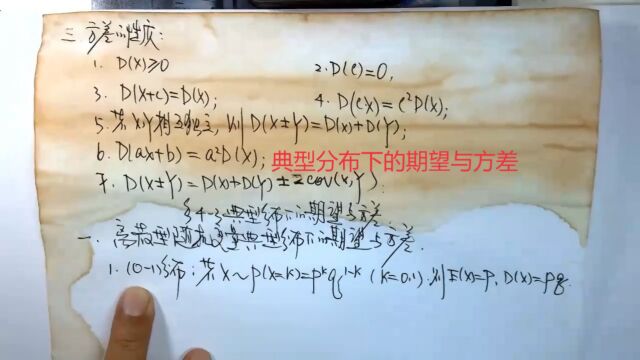 三.方差的性质:
1. D(X)≥0
2. D(C)=0,
3. D(X+c)=D(X);
4. D(cX)=c²D(X);
5. 若X,Y相互独立,则D(X±Y)=D(X)+D(Y);
6. D(aX+b)=a²D(X);
典型分布下的期望与方差
7. D(X±Y)=D(X)+D(Y)±2cov(X,Y)
§4-3典型分布下的期望与方差
一.离散型随机变量典型分布下的期望与方差.
1. (0-1)分布:若X~P(X=K)=p^k q^1-k (K=0,1).则E(X)=P, D(X)=pq.